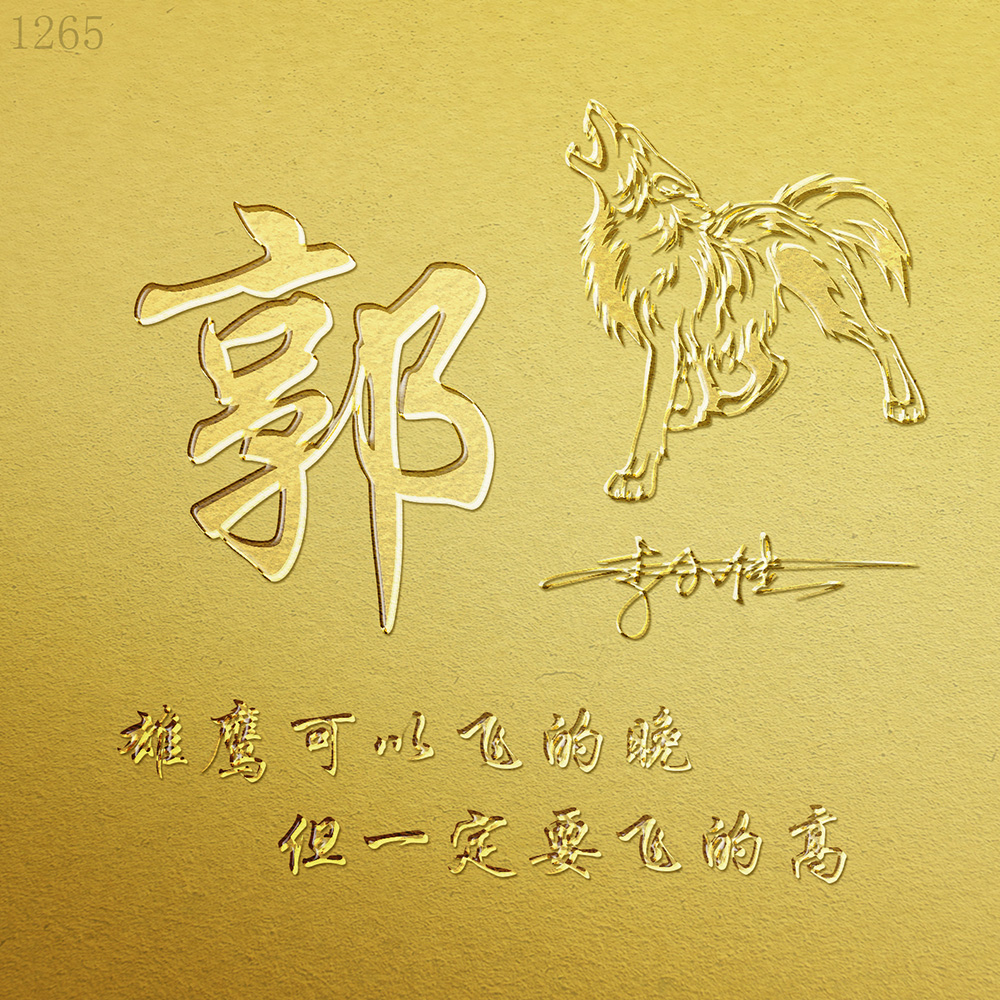 1265
郭
雄鹰可以飞的晚
但一定要飞的高